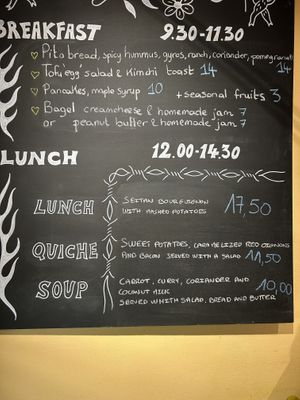 BREAKFAST 9.30-11.30
Pita bread, spicy hummus, gyros, ranch, coriander, pomegranate 14
Tofu egg salad & Kimchi toast 14
Pancakes, maple syrup 10 + seasonal fruits 3
Bagel creamcheese & homemade jam 7
or peanut butter & homemade jam 7
LUNCH 12.00-14.30
LUNCH SEITAN BOURGUIGNON
WITH MASHED POTATOES 17,50
QUICHE SWEET POTATOES, CARAMELIZED RED ONIONS
AND BACON SERVED WITH A SALAD 11,50
SOUP CARROT, CURRY, CORIANDER AND
COCONUT MILK 10,00
SERVED WHITH SALAD, BREAD AND BUTTER